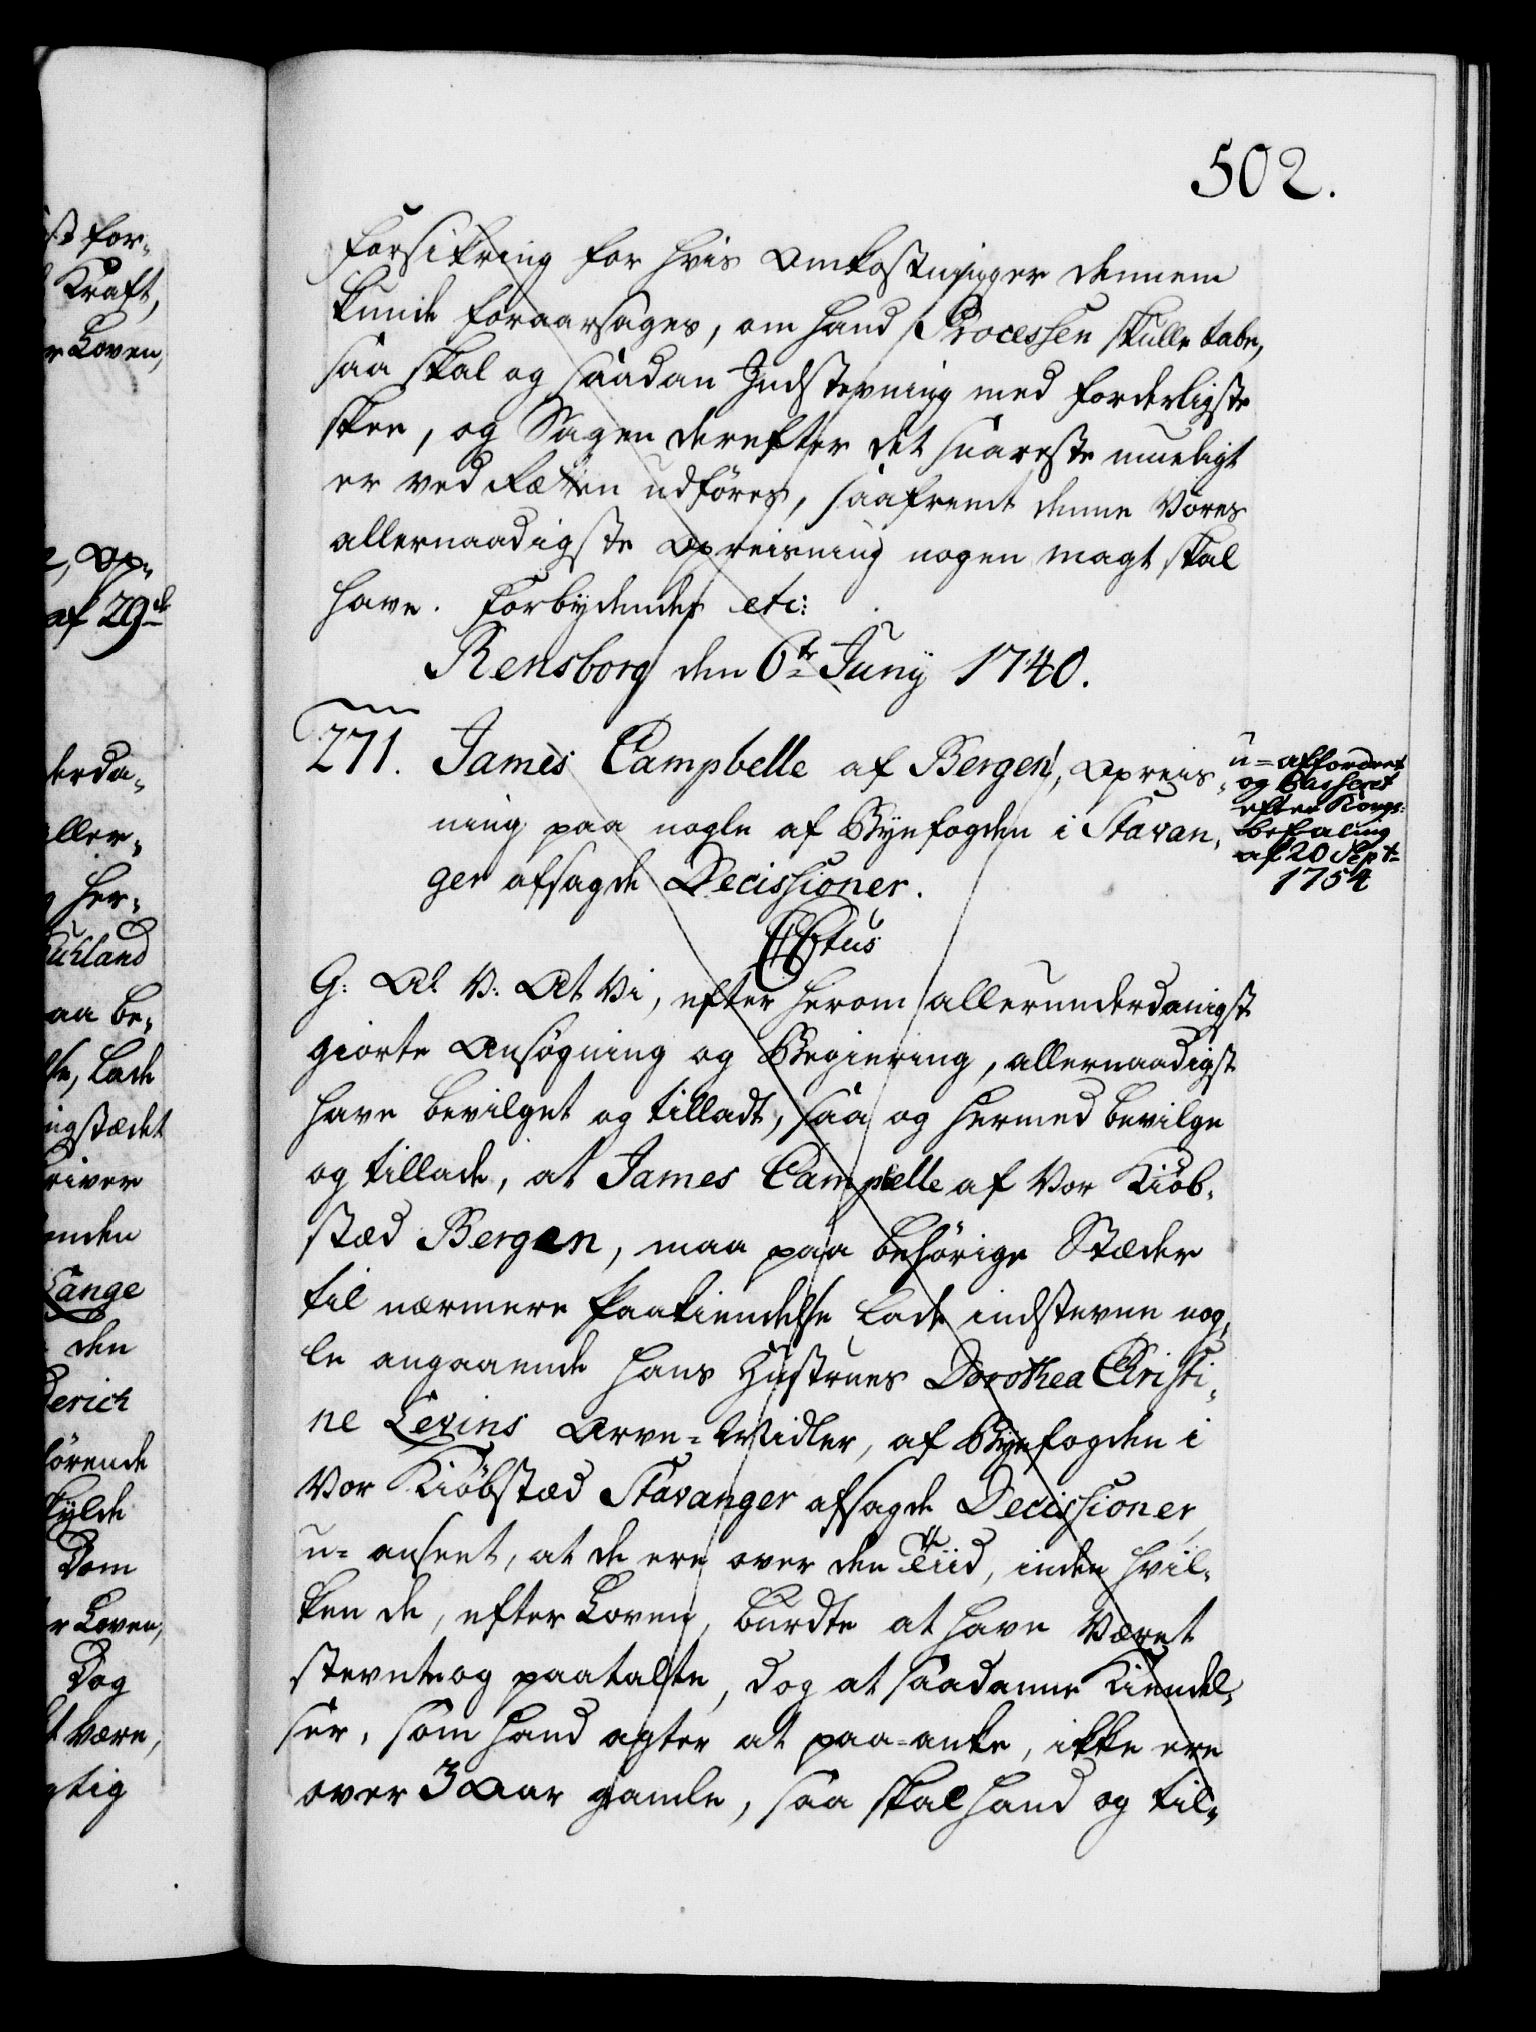 502.
forsikring for hvis Omkostninger dennem
kunde foraarsages, om hand Processen skulle tabe,
saa skal og saadan Indstevning med forderligste
skee, og Sagen derefter det snareste mueligt
er ved Rætten udføres, saafremt denne Vores
allernaadigste Opreisning nogen magt skal
have. Forbydendes etc:
Rensborg den 6te Junij 1740.
271. James Campbelle af Bergen, Opreis-
ning paa nogle af Byefogden i Stavan-
ger afsagde Decissioner.
u-affordret
og Casseret
efter Kongl:
Befaling
af 20 Sept
1754
G: A: V: At Vi, efter herom allerunderdanigst
giorte Ansøgning og Begiering, allernaadigst
have bevilget og tilladt, saa og hermed bevilge
og tillade, at James Campbelle af Vor Kiøb-
stæd Bergen, maa paa behørige Stæder
til nærmere Paakiendelse lade indstevne nog-
le angaaende hans Hustrues Dorothea Christi-
ne Levins Arve-Midler, af Byefogden i
Vor Kiøbstæd Stavanger afsagde Decissioner,
u-anseet, at de ere over den Tiid, inden hvil-
ken de, efter Loven, burdte at have været
stevnte og paatalte, dog at saadanne Kiendel-
ser, som hand agter at paa-anke, ikke ere
over 3 Aar gamle, saa skal hand og til-
st for-
Kraft,
r Loven,
af 29de
derda-
aller-
her-
uchland
aa be-
lade
ngstædet
river
enden
Lange
den
Derich
hørende
kylde
Dom
r Loven,
Dog
t være,
gtig